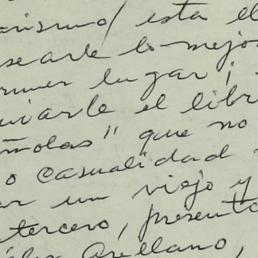 arismo/ esta el
searle lo mejo
rimer lugar;
viarle el libr
ñolas" que no
o casualidad
ar un viejo y
tercero, presenta
Arellano,